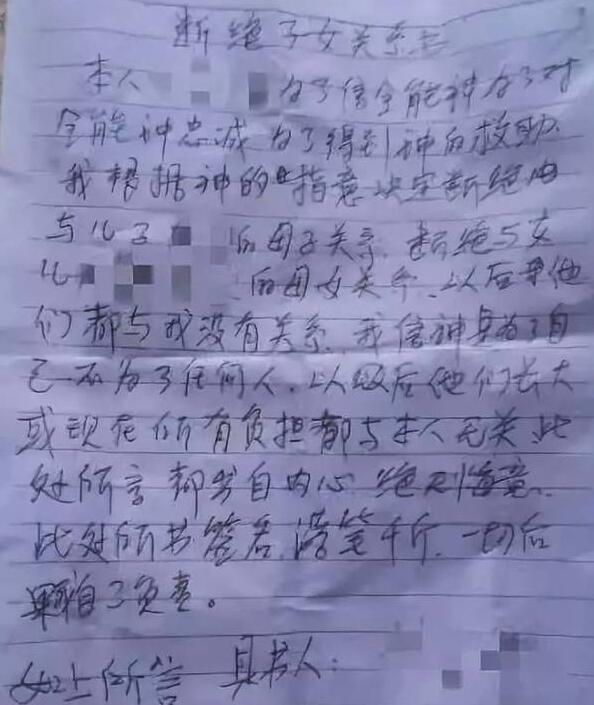 断绝子女关系书
本人 为了信全能神为了对
全能神忠诚为了得到神的救助
我根据神的指意决定断绝
与儿子 的母子关系,断绝与女
儿 的母女关系,以后他
们都与我没有关系,我信神是为了自
己不为了任何人,以后他们长大
或现在所有负担都与本人无关此
处所言都出自内心绝无悔意。
此处所书签名,落笔千斤,一切后
果自己负责。
如上所言 具书人: